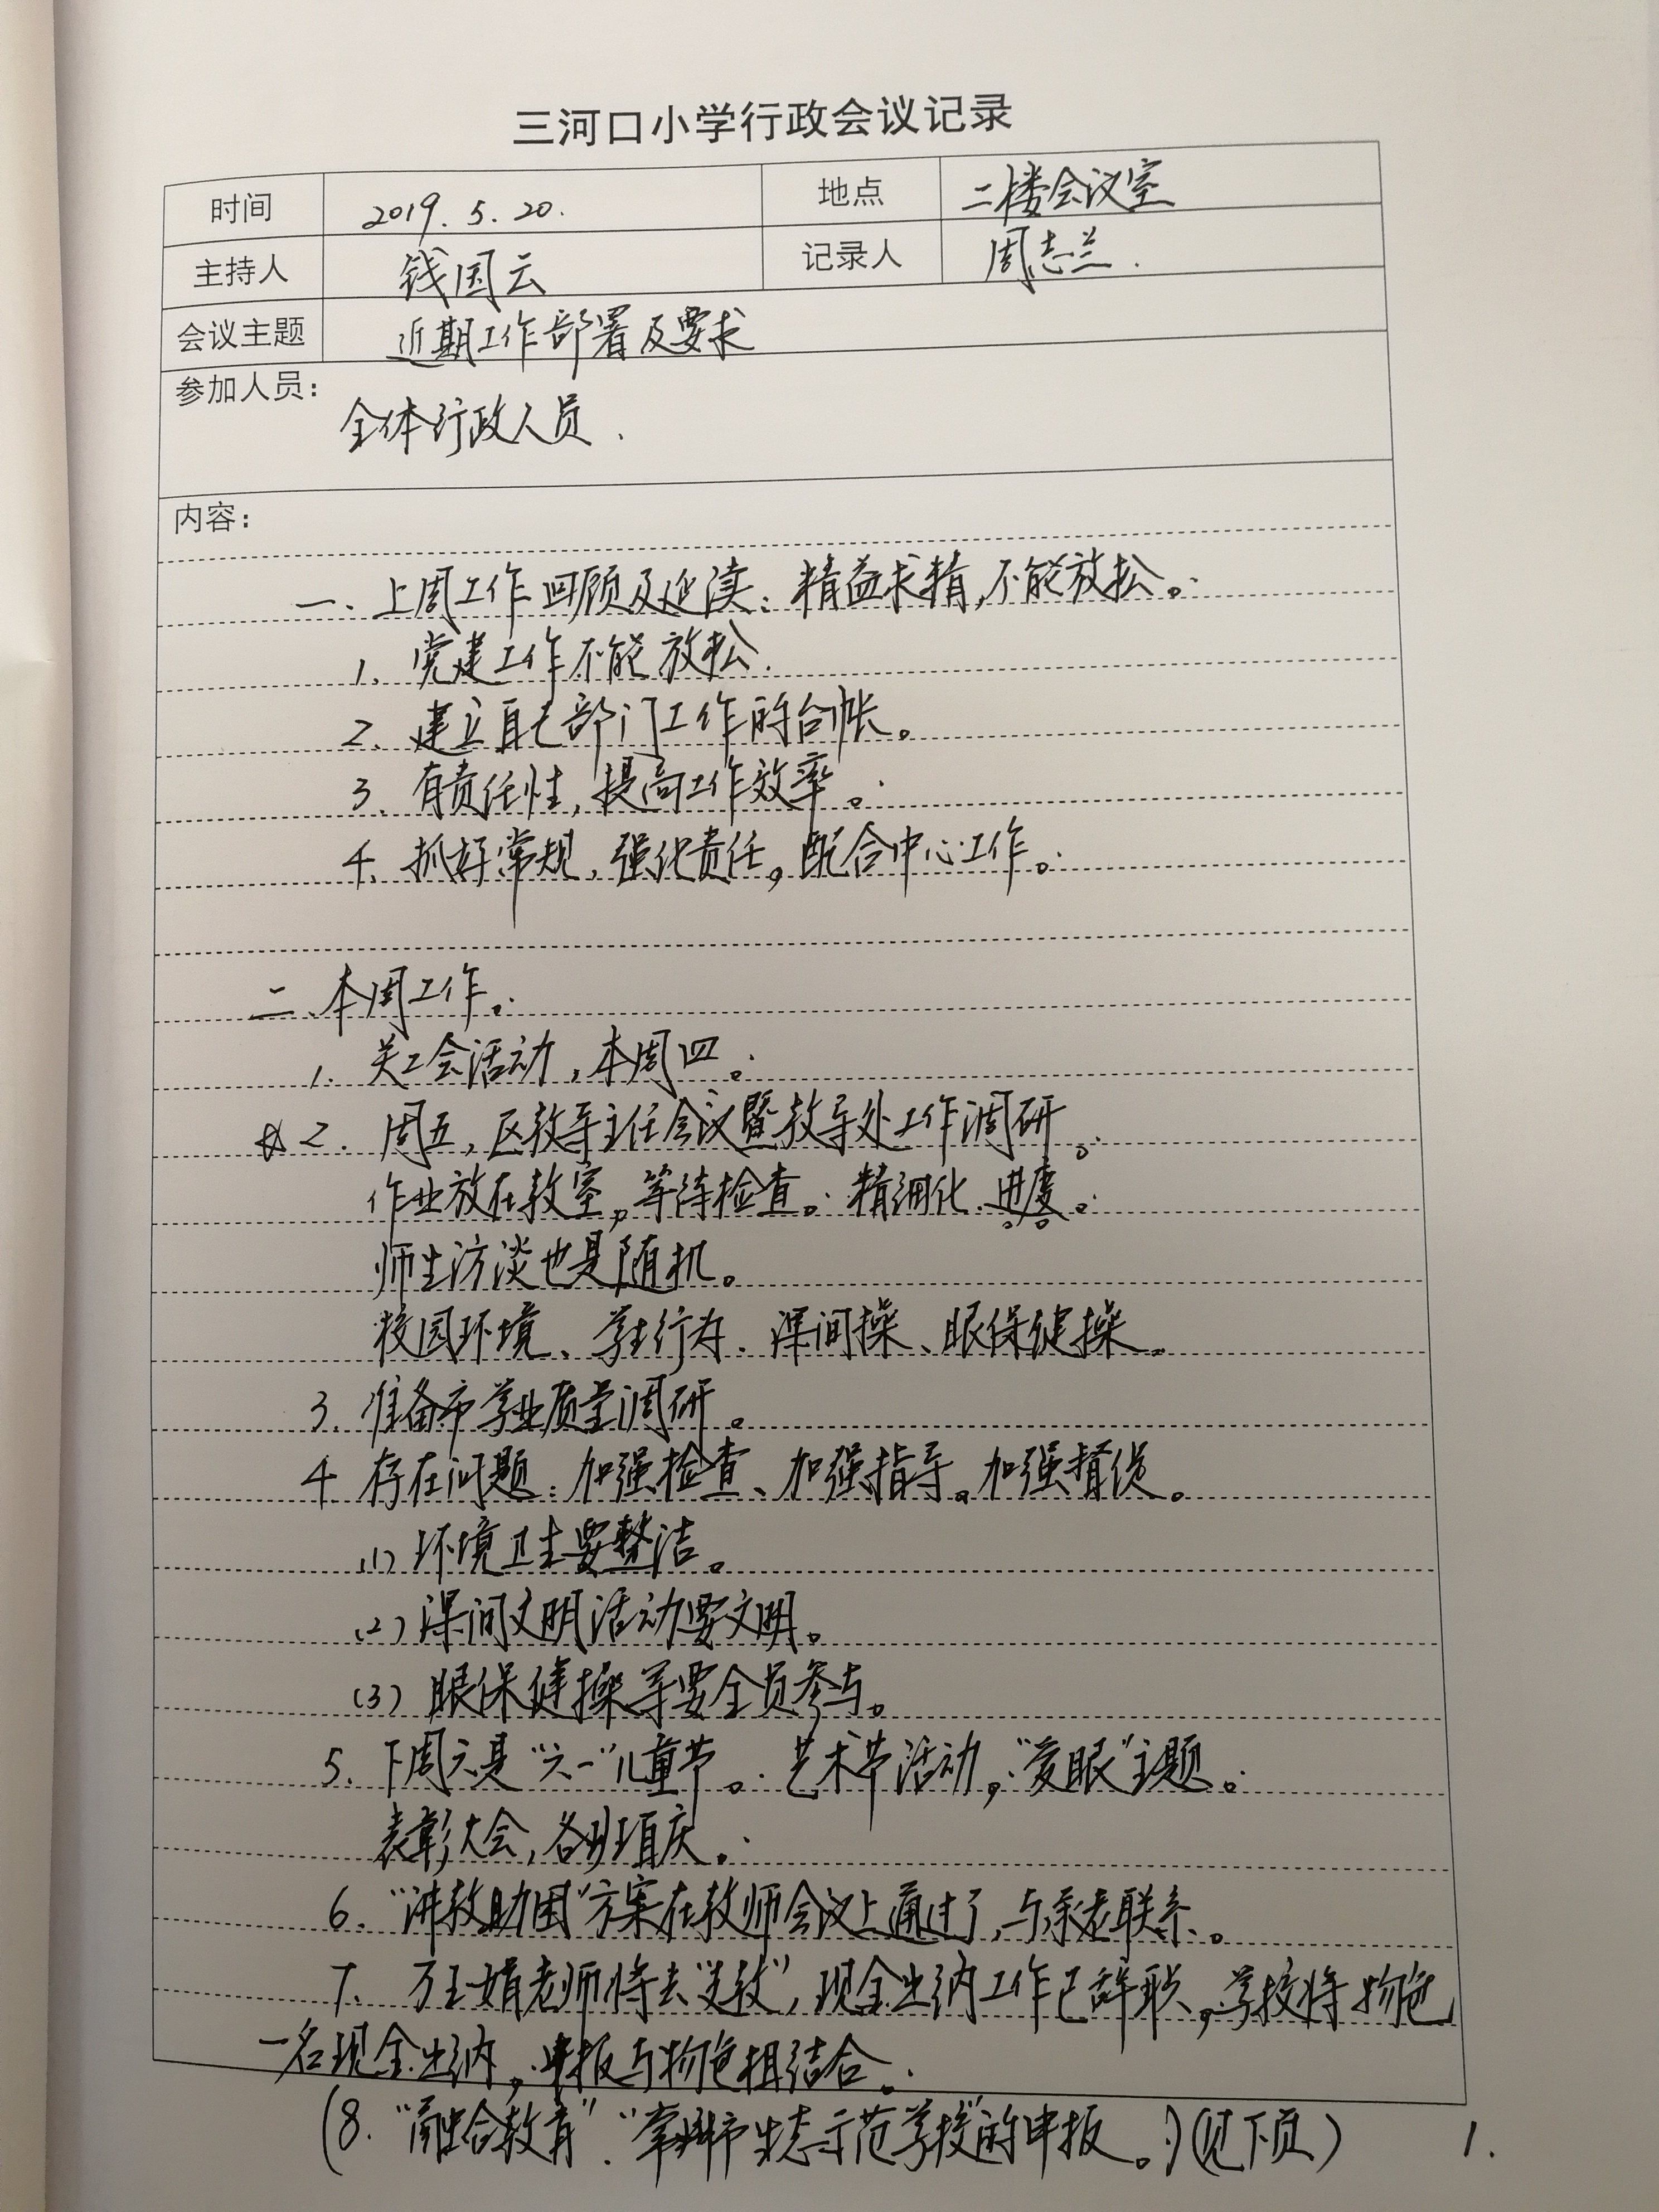 三河口小学行政会议记录
时间 2019.5.20. 地点 二楼会议室
主持人 钱国云 记录人 周志兰.
会议主题 近期工作部署及要求
参加人员：
全体行政人员.
内容：
一、上周工作回顾及延续：精益求精，不能放松。
1、党建工作不能放松.
2、建立自己部门工作的台帐。
3、有责任性，提高工作效率。
4、抓好常规，强化责任。配合中心工作。
二、本周工作。
1. 关工会活动，本周四。
☆2. 周五，区教导主任会议暨教导处工作调研。
作业放在教室，等待检查。精细化、进度。
师生访谈也是随机。
校园环境、学生行为、课间操、眼保健操。
3. 准备市学业质量调研。
4 存在问题：加强检查、加强指导。加强督促。
(1) 环境卫生要整洁。
(2) 课间文明活动要文明。
(3) 眼保健操等要全员参与。
5. 下周六是“六一”儿童节。艺术节活动，“爱眼”主题。
表彰大会，各班项庆。
6. “讲教助困”方案在教师会议上通过了，与承老联系。
7. 万玉娟老师将去“支教”，现金出纳工作已辞职，学校将物色
一名现金出纳，申报与物色相结合。
(8. “融合教育”.“常州市生态示范学校”的申报。)(见下页)
1.